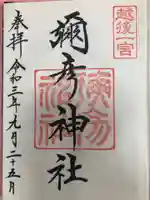 越後一宮
彌彦神社
彌彦神社
奉拝 令和三年九月二十五日